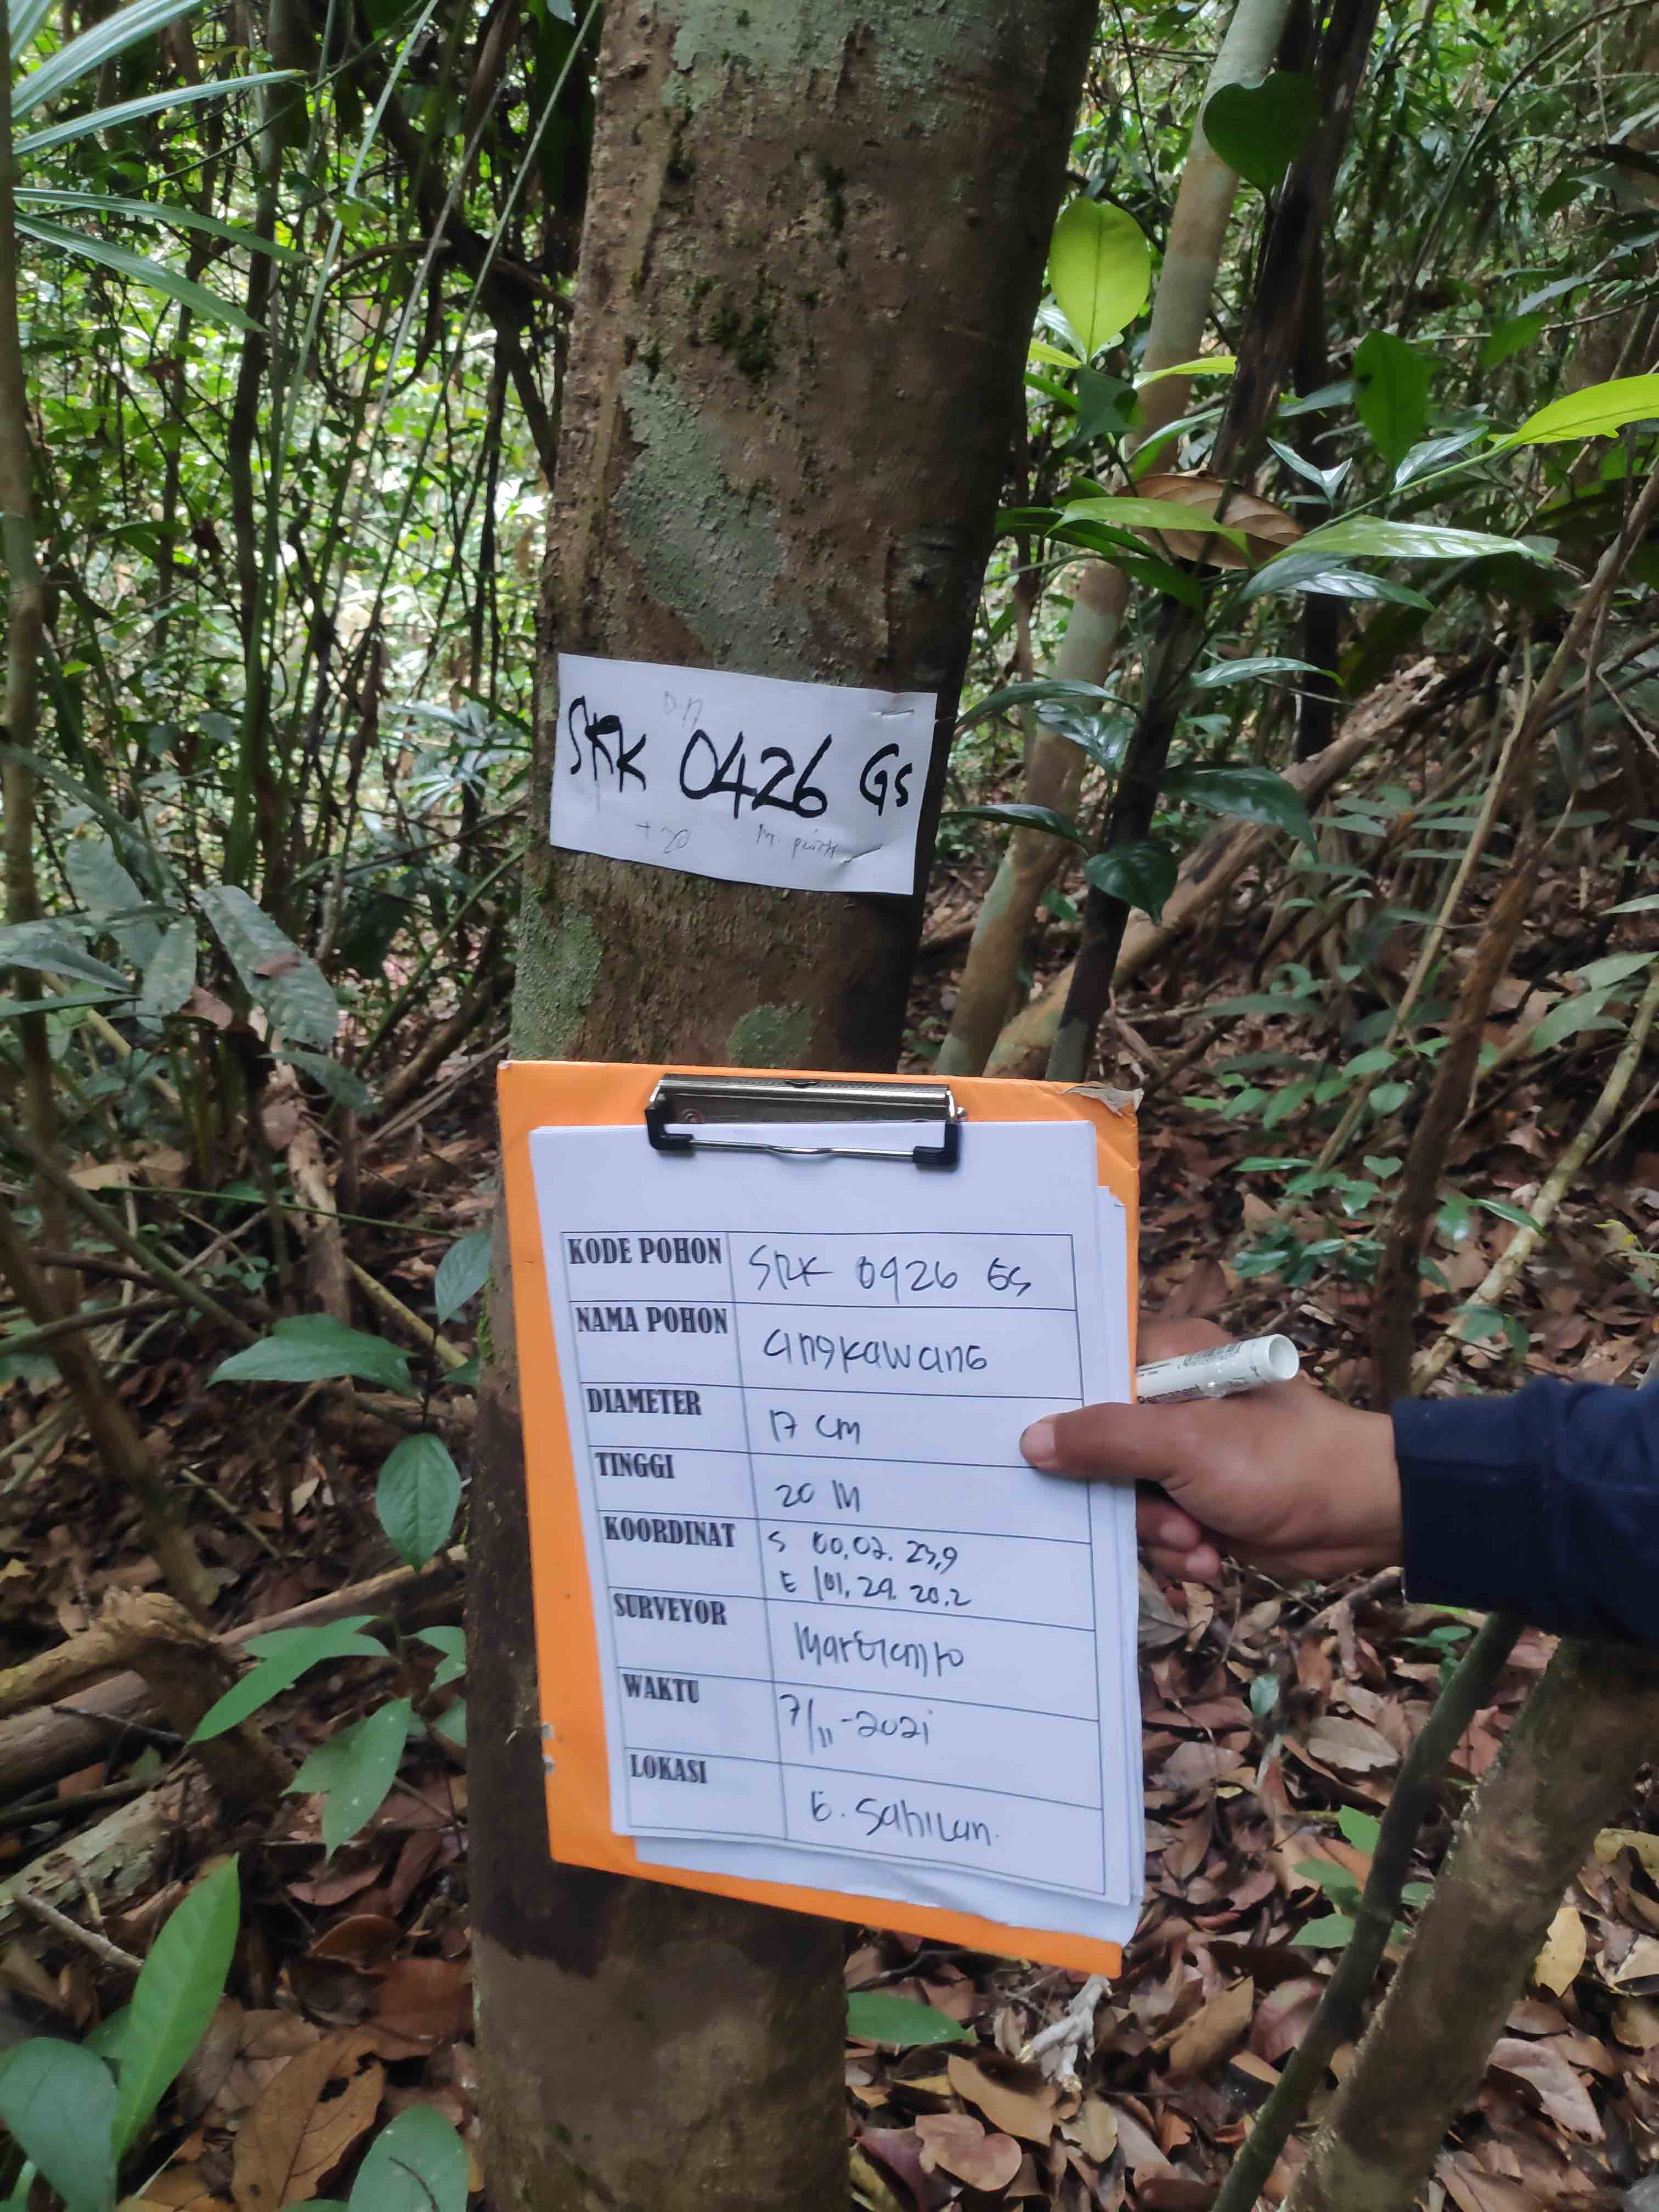 D.17
SRK 0426 GS
T 20
KODE POHON SRK 0426 GS
NAMA POHON angkawang
DIAMETER 17 cm
TINGGI 20 M
KOORDINAT S 00.02.23,9
E 101.29.20.2
SURVEYOR
WAKTU 7/11-2021
LOKASI G. Sahilan.